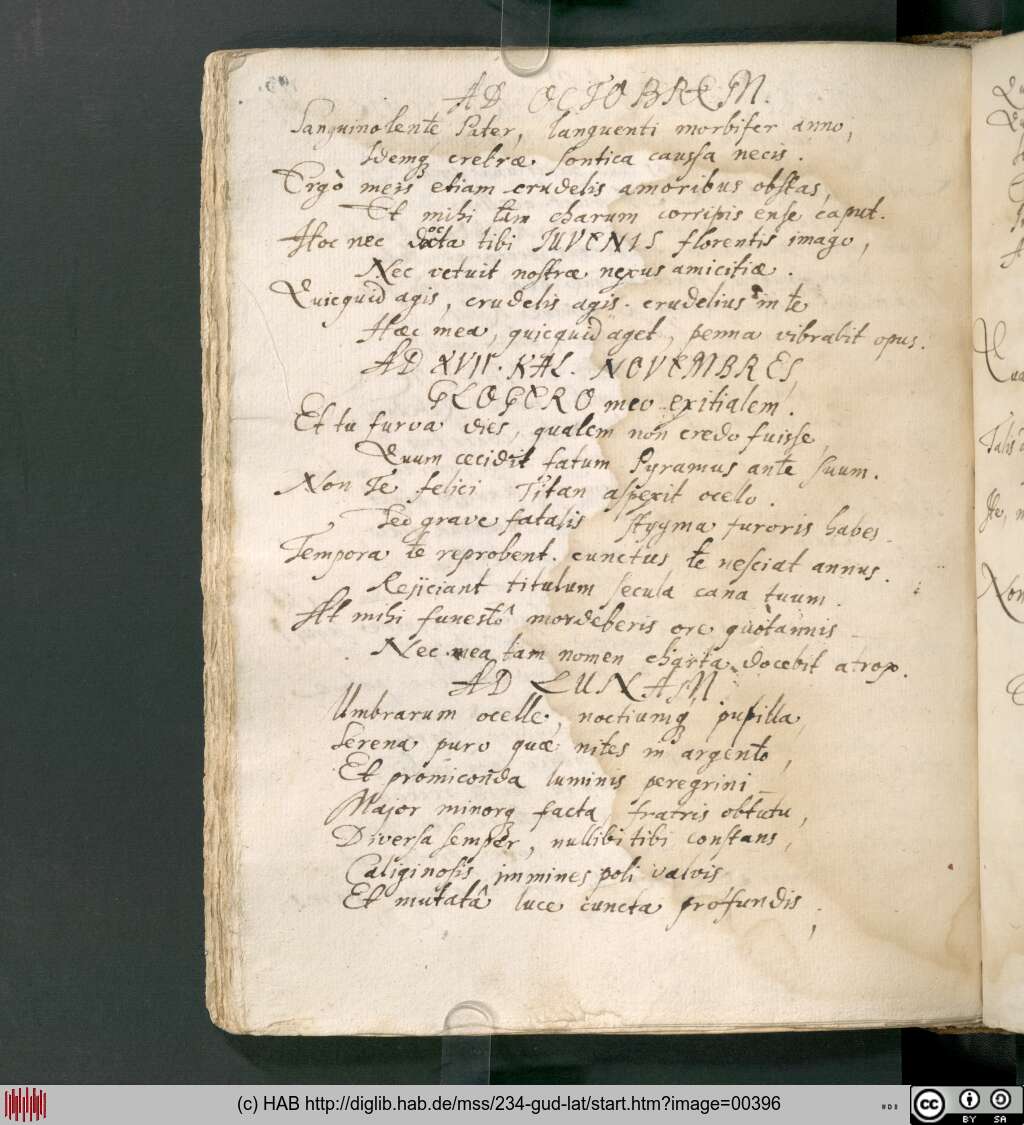 AD OCTOBREM.
Sanguinolente Pater, languenti morbifer anno,
Idemq; crebræ sontica caussa necis.
Ergò meis etiam crudelis amoribus obstas,
Et mihi tàm charum corripis ense caput.
Hoc nec docta tibi IUVENIS florentis imago,
Nec vetuit nostræ nexus amicitiæ.
Quicquid agis, crudelis agis. crudelius in te
Hæc mea, quicquid aget, penna vibrabit opus.
AD XVII. KAL. NOVEMBRES,
GLOGERO meo exitialem.
Et tu furva dies, qualem non credo fuisse,
Quum cecidit fatum Pyramus ante suum.
Non Te felici Titan aspexit ocelo.
Sed grave fatalis stygma furoris habes.
Tempora te reprobent. cunctus te nesciat annus.
Rejiciant titulum secula cana tuum.
At mihi funestô mordeberis ore quòtannis
Nec mea tam nomen charta docebit atrox.
AD LUNAM
Umbrarum ocelle, noctiumq; pupilla,
Serena puro quæ nites in argento,
Et promiconda luminis peregrini
Major minorq; facta, fratris obtutu,
Diversa semper, nullibi tibi constans,
Caliginosis immines poli valvis
Et mutatâ luce cuncta profundis;
(c) HAB http://diglib.hab.de/mss/234-gud-lat/start.htm?image=00396
cc BY SA